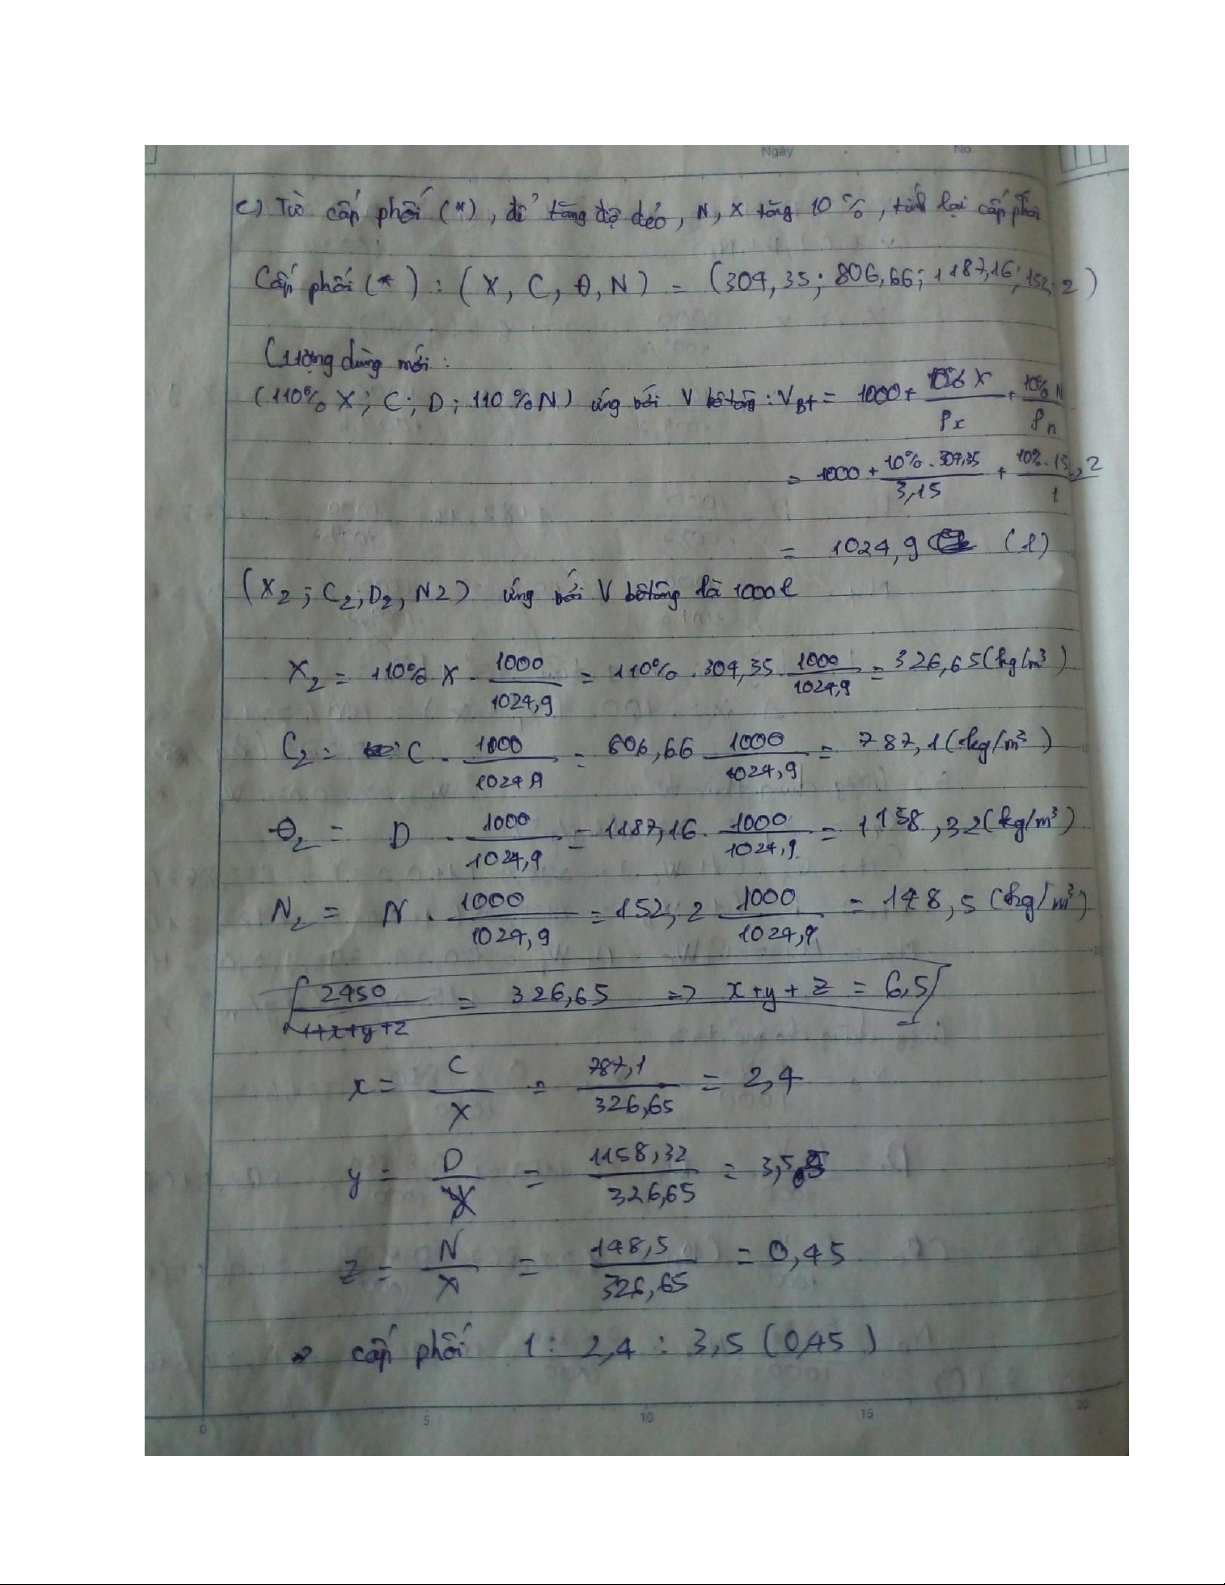 Ngày No.
c) Từ cấp phối (*), để tăng độ dẻo, N, X tăng 10%, tính lại cấp phối
Cấp phối (*) : (X, C, Đ, N) = (304,35; 806,66; 1187,16; 152,2)
Lượng dùng mới:
(110% X; C; D; 110%N) ứng với V bêtông: VBt = 1000 + 10% X / ρx + 10% N / ρn
= 1000 + 10% . 304,35 / 3,15 + 10% . 152,2 / 1
= 1024,9 (l)
(X2; C2; D2, N2) ứng với V bêtông là 1000l
X2 = 110% X . 1000 / 1024,9 = 110% . 304,35 . 1000 / 1024,9 = 326,65 (kg/m³)
C2 = C . 1000 / 1024,9 = 806,66 1000 / 1024,9 = 787,1 (kg/m³)
Đ2 = D . 1000 / 1024,9 = 1187,16 . 1000 / 1024,9 = 1158,32 (kg/m³)
N2 = N . 1000 / 1024,9 = 152,2 1000 / 1024,9 = 148,5 (kg/m³)
2450 / 1+x+y+z = 326,65 => x+y+z = 6,5
x = C / X = 787,1 / 326,65 = 2,4
y = D / X = 1158,32 / 326,65 = 3,5
z = N / X = 148,5 / 326,65 = 0,45
⇒ cấp phối 1 : 2,4 : 3,5 (0,45)
0 5 10 15 20